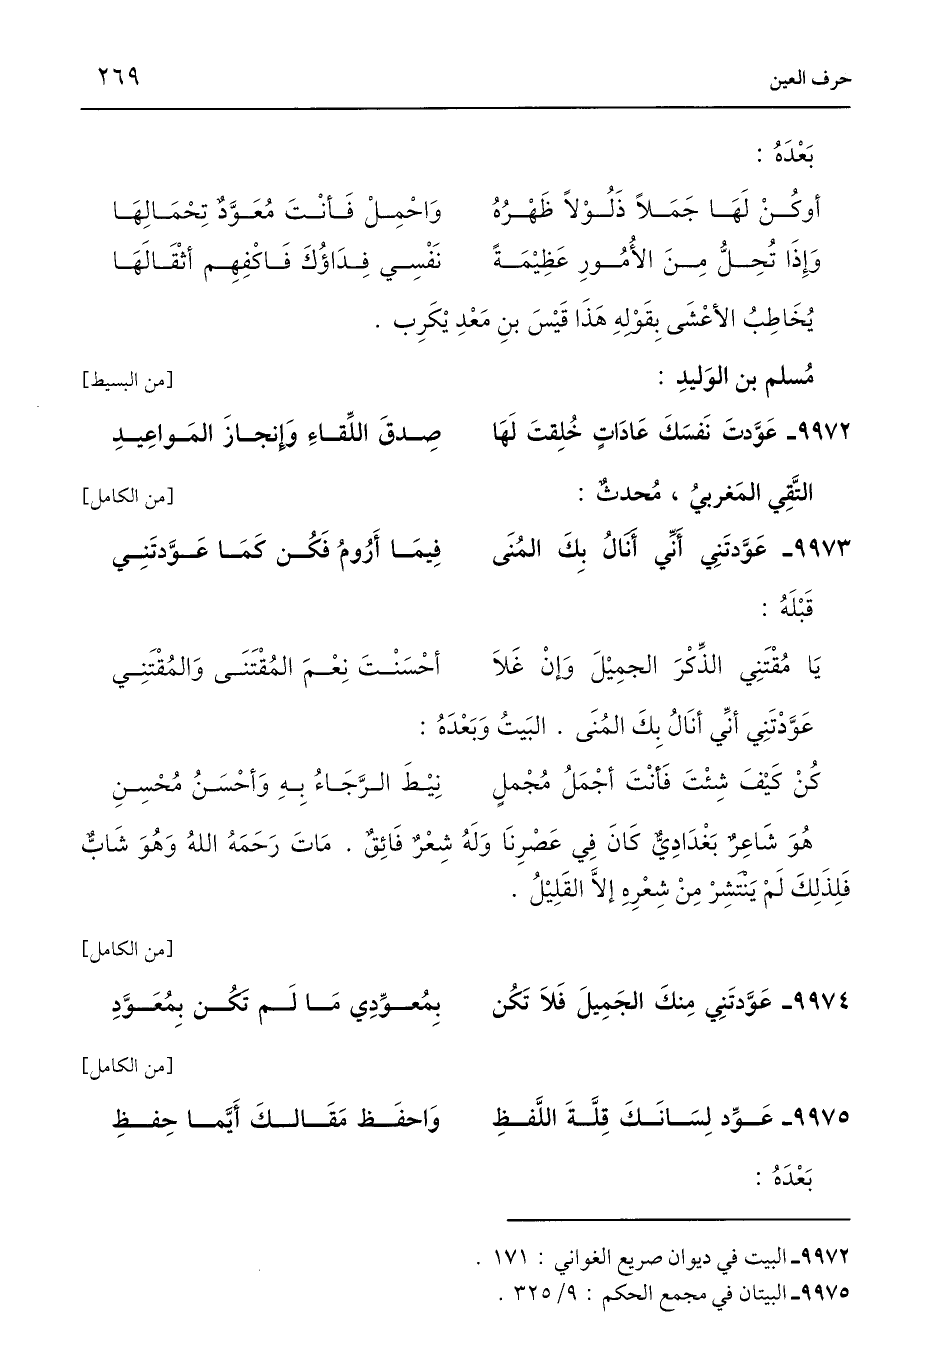 حرف العين ٢٦٩
بَعْدَهُ :
أوكُنْ لَهَا جَمَلاً ذَلُوْلاً ظَهْرُهُ وَاحْمِلْ فَأنْتَ مُعَوَّدٌ تِحْمَالِهَا
وَإِذَا تُحِلُّ مِنَ الأُمُورِ عَظِيْمَةً نَفْسِي فِدَاؤُكَ فَاكْفِهِم أثْقَالَهَا
يُخَاطِبُ الأعْشَى بِقَوْلِهِ هَذَا قَيْسَ بنِ مَعْدِ يْكَرِب .
مُسلم بن الوَليدِ : [من البسيط]
٩٩٧٢ـ عَوَّدتَ نَفسَكَ عَادَاتٍ خُلِقتَ لَهَا صِدقَ اللِّقاءِ وَإنجازَ المَواعِيدِ
التَّقِي المَغربيُ ، مُحدثٌ : [من الكامل]
٩٩٧٣ـ عَوَّدتَنِي أَنِّي أَنَالُ بِكَ المُنَى فِيمَا أَرُومُ فَكُن كَمَا عَوَّدتَنِي
قَبْلَهُ :
يَا مُقْتَنِي الذِّكْرَ الجمِيْلَ وَإنْ غَلاَ أحْسَنْتَ نِعْمَ المُقْتَنَى وَالمُقْتَنِي
عَوَّدْتَنِي أنِّي أنَالُ بِكَ المُنَى . البَيتُ وَبَعْدَهُ :
كُنْ كَيْفَ شِئْتَ فَأنْتَ أجْمَلُ مُجْملٍ نِيْطَ الرَّجَاءُ بِهِ وَأحْسَنُ مُحْسِنِ
هُوَ شَاعِرٌ بَغْدَادِيٌّ كَانَ فِي عَصْرِنَا وَلَهُ شِعْرٌ فَائِقٌ . مَاتَ رَحَمَهُ اللهُ وَهُوَ شَابٌّ
فَلِذَلِكَ لَمْ يَنْتَشِرْ مِنْ شِعْرِهِ إلاَّ القَلِيْلُ .
[من الكامل]
٩٩٧٤ـ عَوَّدتَنِي مِنكَ الجَمِيلَ فَلاَ تَكُن بِمُعوِّدِي مَا لَم تَكُن بِمُعَوَّدِ
[من الكامل]
٩٩٧٥ـ عَوِّد لِسَانَكَ قِلَّةَ اللَّفظِ وَاحفَظ مَقَالكَ أَيَّما حِفظِ
بَعْدَهُ :
٩٩٧٢ـ البيت في ديوان صريع الغواني : ١٧١ .
٩٩٧٥ـ البيتان في مجمع الحكم : ٩/ ٣٢٥ .